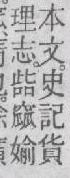 本文。史記貨
理志。啙窳媮